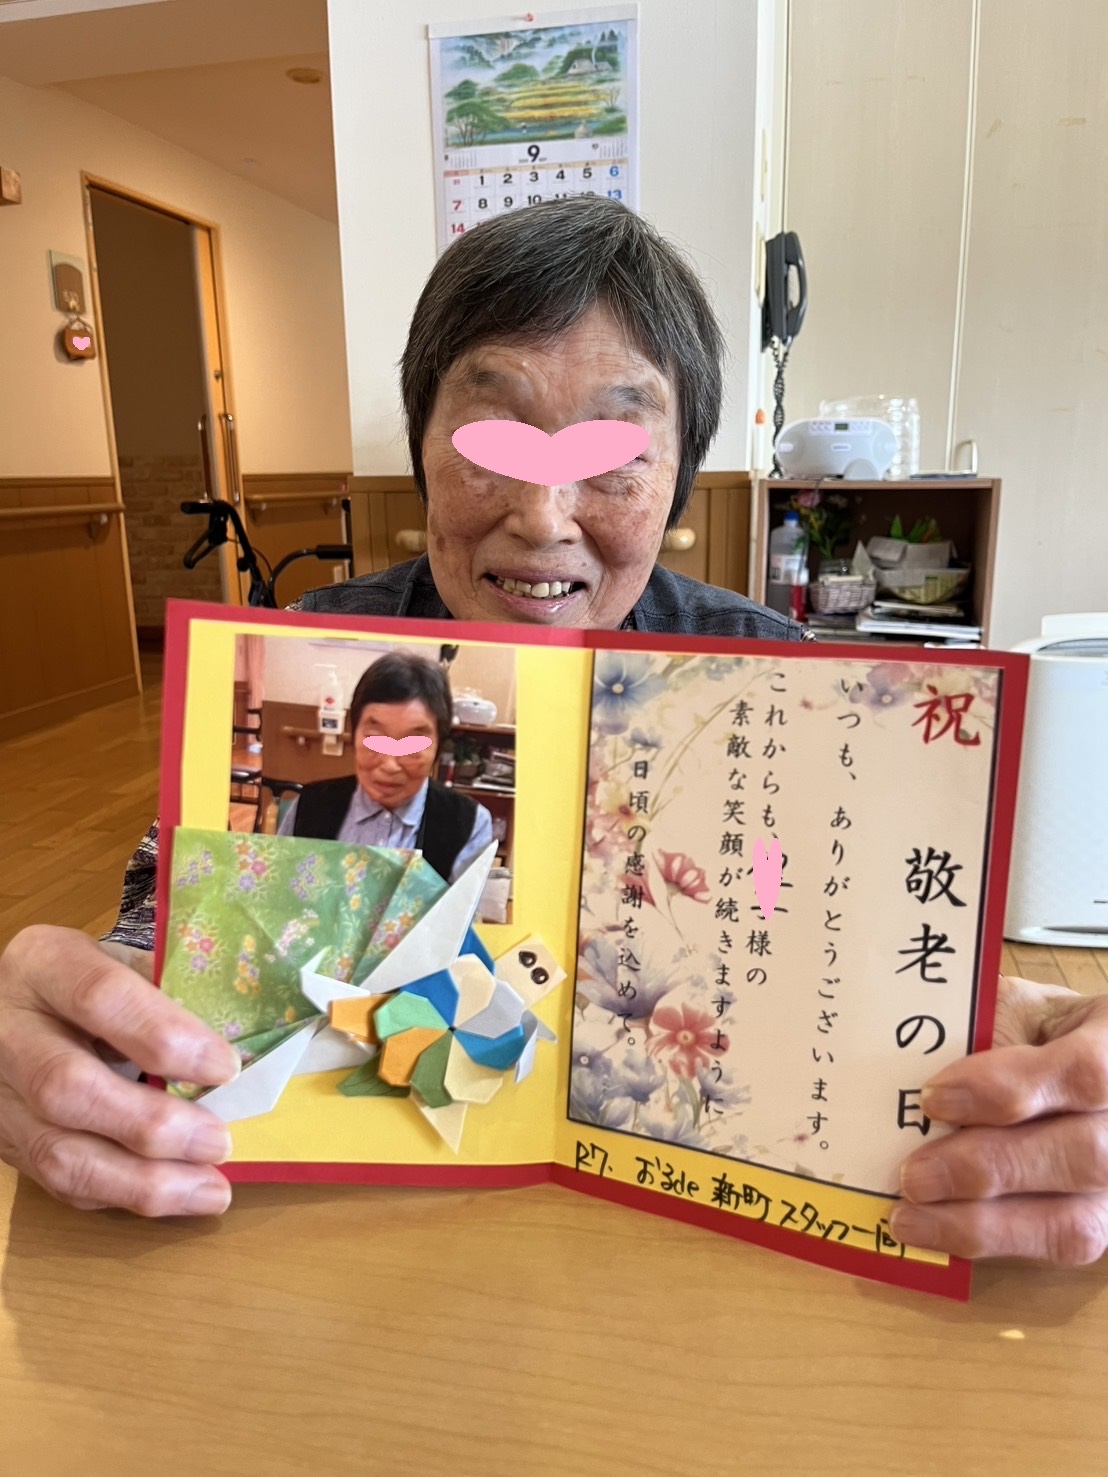 9
1 2 3 4 5 6
7 8 9 10 11 12 13
14
祝 敬老の日
いつも、ありがとうございます。
これからも、
様の
素敵な笑顔が続きますように
日頃の感謝を込めて。
R7. おるde新町スタッフ一同